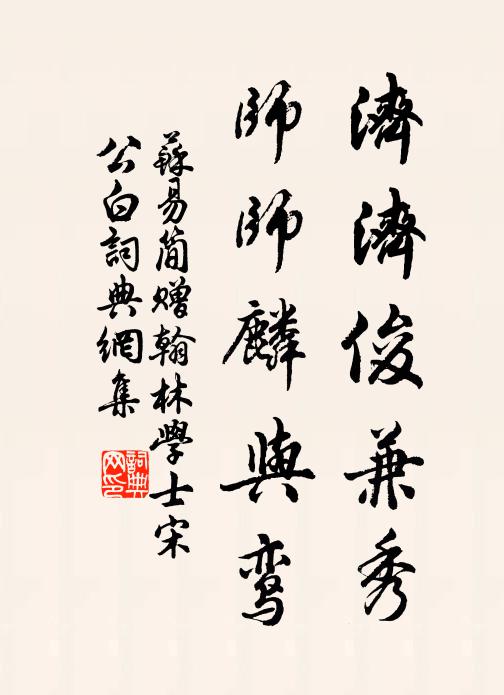 濟濟俊兼秀
師師麟與鸾
蘇易简赠翰林學士宋
公白詞典網集
詞典
网印